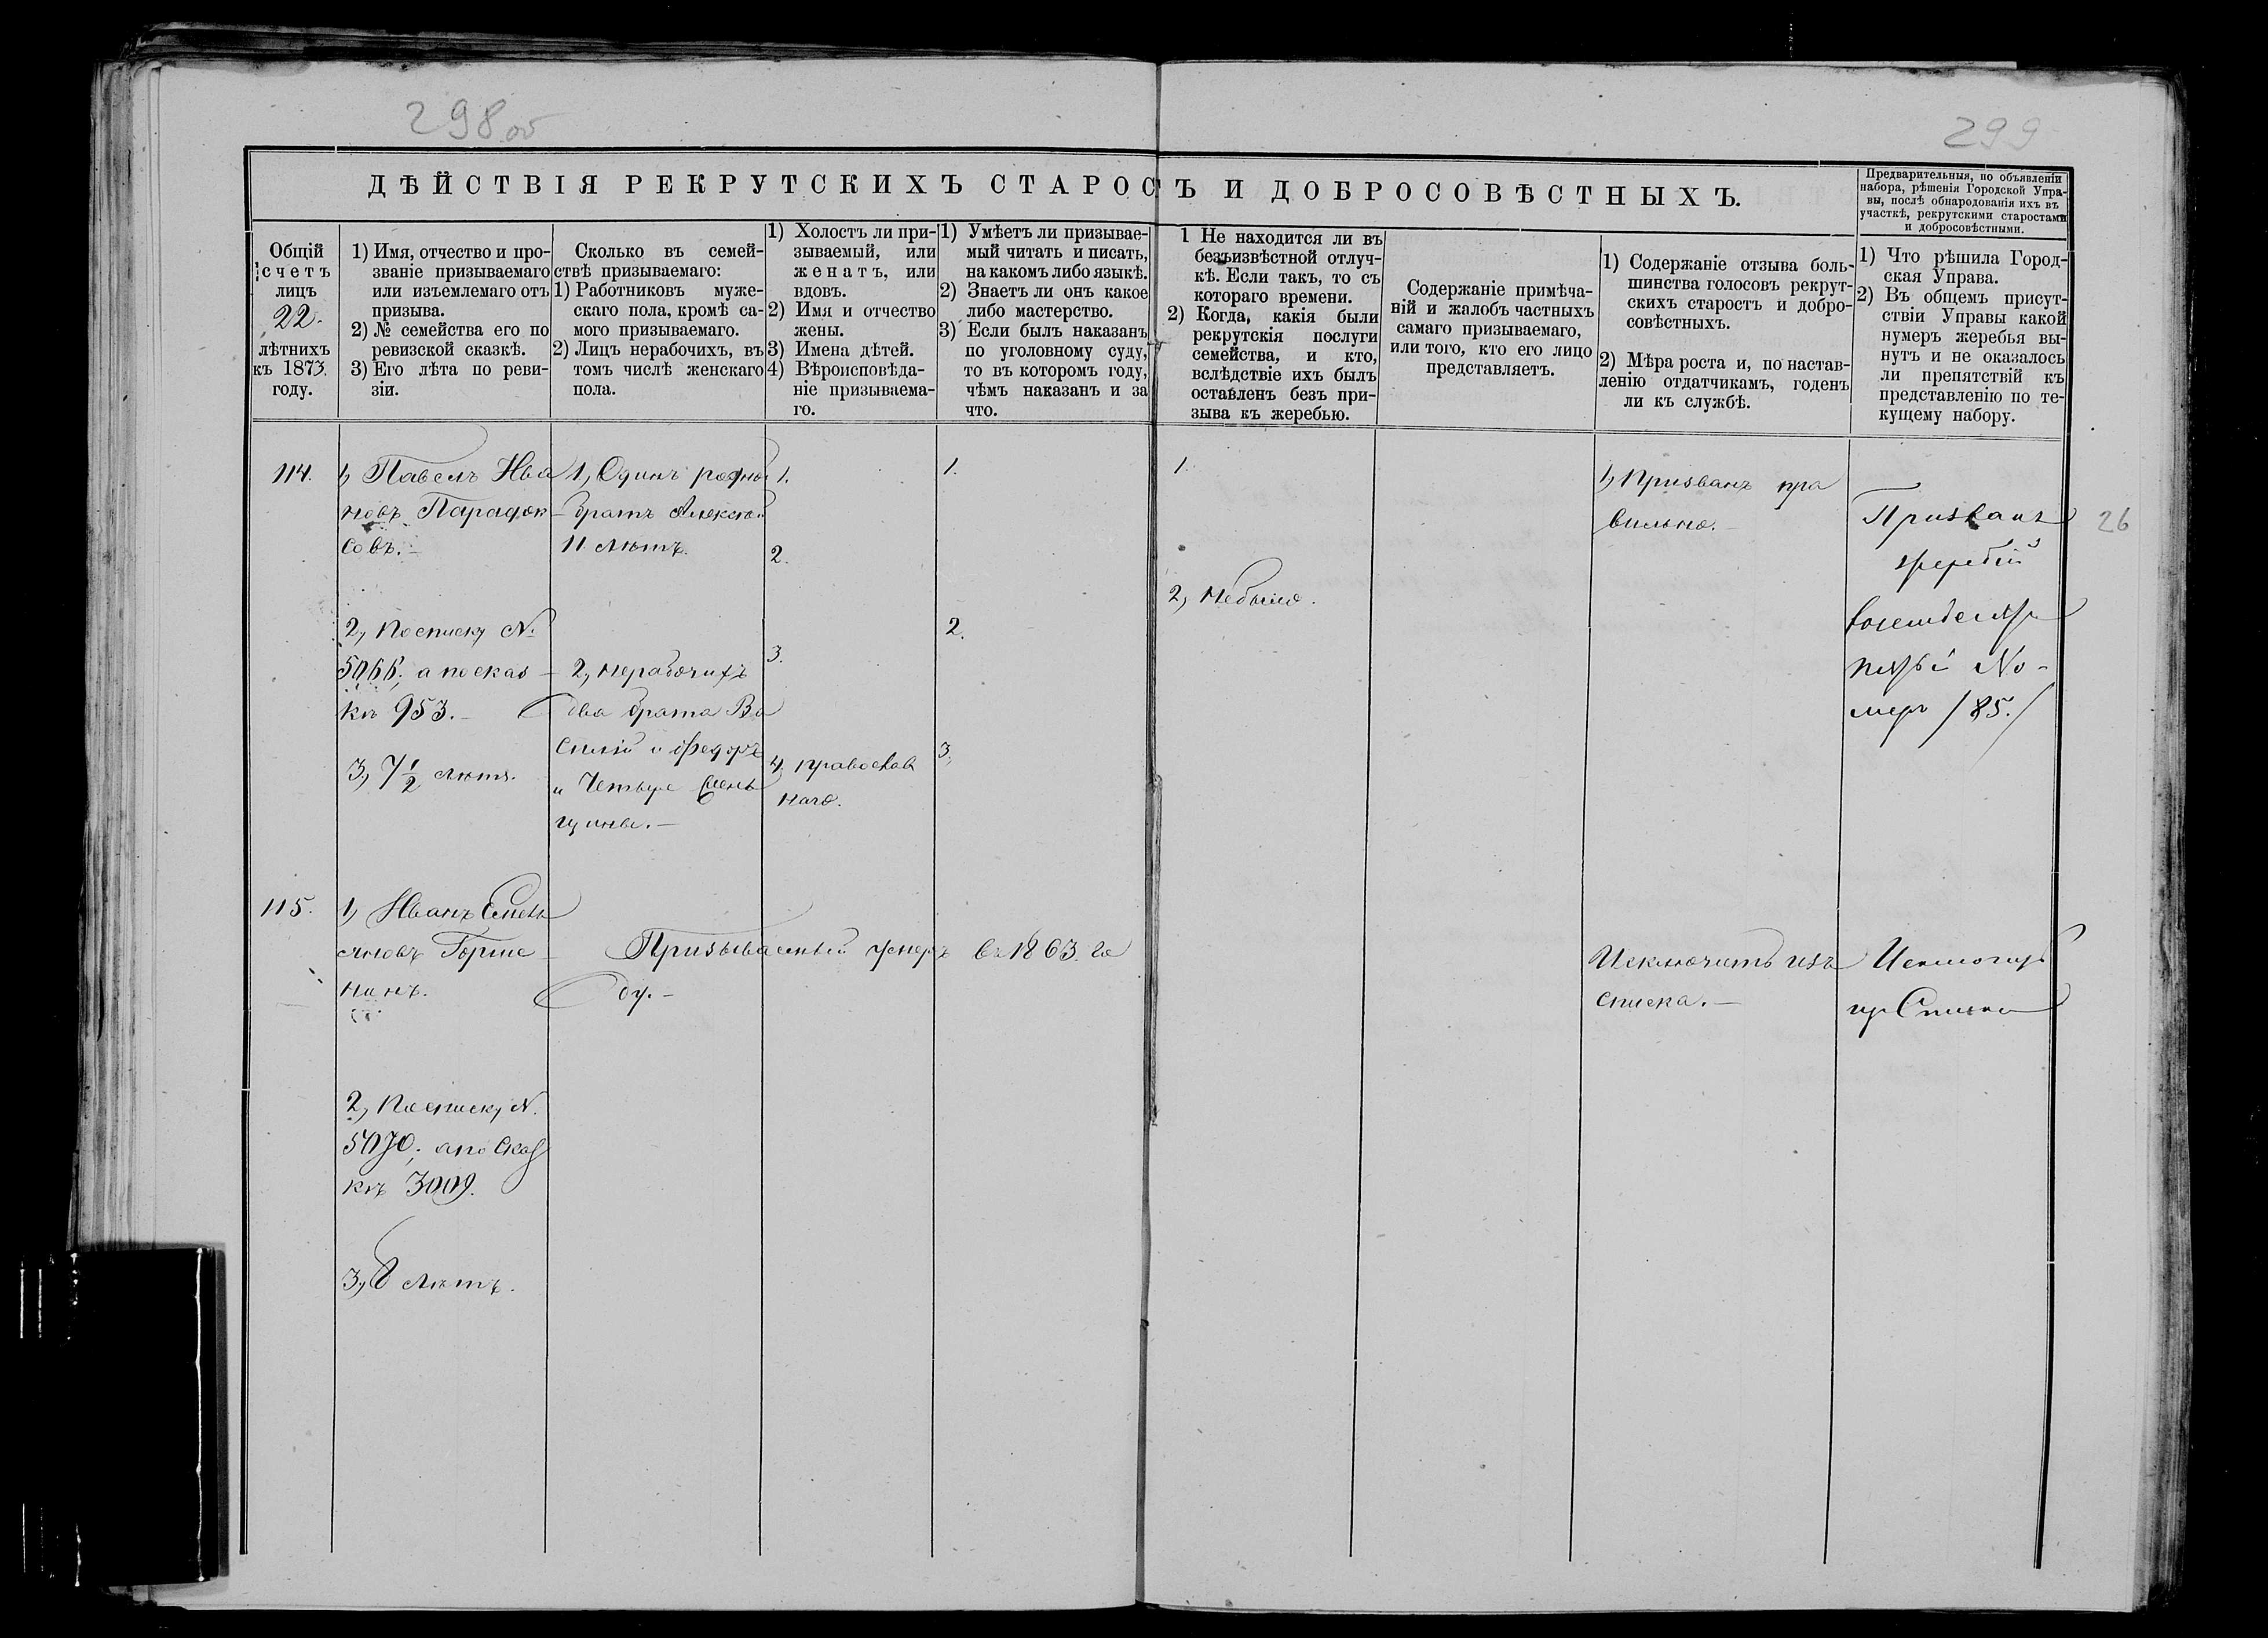 298 об
299
ДѢЙСТВІЯ РЕКРУТСКИХЪ СТАРОСТЪ И ДОБРОСОВѢСТНЫХЪ.
Предварительныя, по объявленіи
набора, рѣшенія Городской Упра-
вы, послѣ обнародованія ихъ въ
участкѣ, рекрутскими старостами
и добросовѣстными.
Общій
счетъ
лицъ
22.
лѣтнихъ
къ 1873.
году.
1) Имя, отчество и про-
званіе призываемаго
или изъемлемаго отъ
призыва.
2) № семейства его по
ревизской сказкѣ.
3) Его лѣта по реви-
зіи.
Сколько въ семей-
ствѣ призываемаго:
1) Работниковъ муже-
скаго пола, кромѣ са-
мого призываемаго.
2) Лицъ нерабочихъ, въ
томъ числѣ женскаго
пола.
1) Холостъ ли при-
зываемый, или
женатъ, или
вдовъ.
2) Имя и отчество
жены.
3) Имена дѣтей.
4) Вѣроисповѣда-
ніе призываема-
го.
1) Умѣетъ ли призывае-
мый читать и писать,
на какомъ либо языкѣ.
2) Знаетъ ли онъ какое
либо мастерство.
3) Если былъ наказанъ
по уголовному суду,
то въ которомъ году,
чѣмъ наказанъ и за
что.
1 Не находится ли въ
безъизвѣстной отлуч-
кѣ. Если такъ, то съ
котораго времени.
2) Когда, какія были
рекрутскія послуги
семейства, и кто,
вслѣдствіе ихъ былъ
оставленъ безъ при-
зыва къ жеребью.
Содержаніе примѣча-
ній и жалобъ частныхъ
самаго призываемаго,
или того, кто его лицо
представляетъ.
1) Содержаніе отзыва боль-
шинства голосовъ рекрут-
скихъ старостъ и добро-
совѣстныхъ.
2) Мѣра роста и, по настав-
ленію отдатчикамъ, годенъ
ли къ службѣ.
1) Что рѣшила Город-
ская Управа.
2) Въ общемъ присут-
ствіи Управы какой
нумеръ жеребья вы-
нутъ и не оказалось
ли препятствій къ
представленію по те-
кущему набору.
114.
1, Павелъ Ива
новъ Парадок
совъ.
2, По списку №.
5066; а по сказ
кѣ 953.
3, 7 1/2 лѣтъ.
1, Одинъ родной
братъ Алексѣй
11 лѣтъ.
2, нерабочихъ
два брата Ва
силій и Федоръ
и Четыре Жен
щины.
1.
2.
3.
4, Православ
наго.
1.
2.
3.
1.
2, Небыло.
1, Призванъ пра
вильно.
Призванъ
жребій
восемьдесятъ
пятый Но-
меръ /85./
26
115.
1, Иванъ Емель
яновъ Горше
нинъ.
2, По списку №.
5070; а по Сказ
кѣ 3009.
3, 8 лѣтъ.
Призываемый умеръ въ 1863. го
ду.
Исключить изъ
списка.
Исключить
изъ Списка